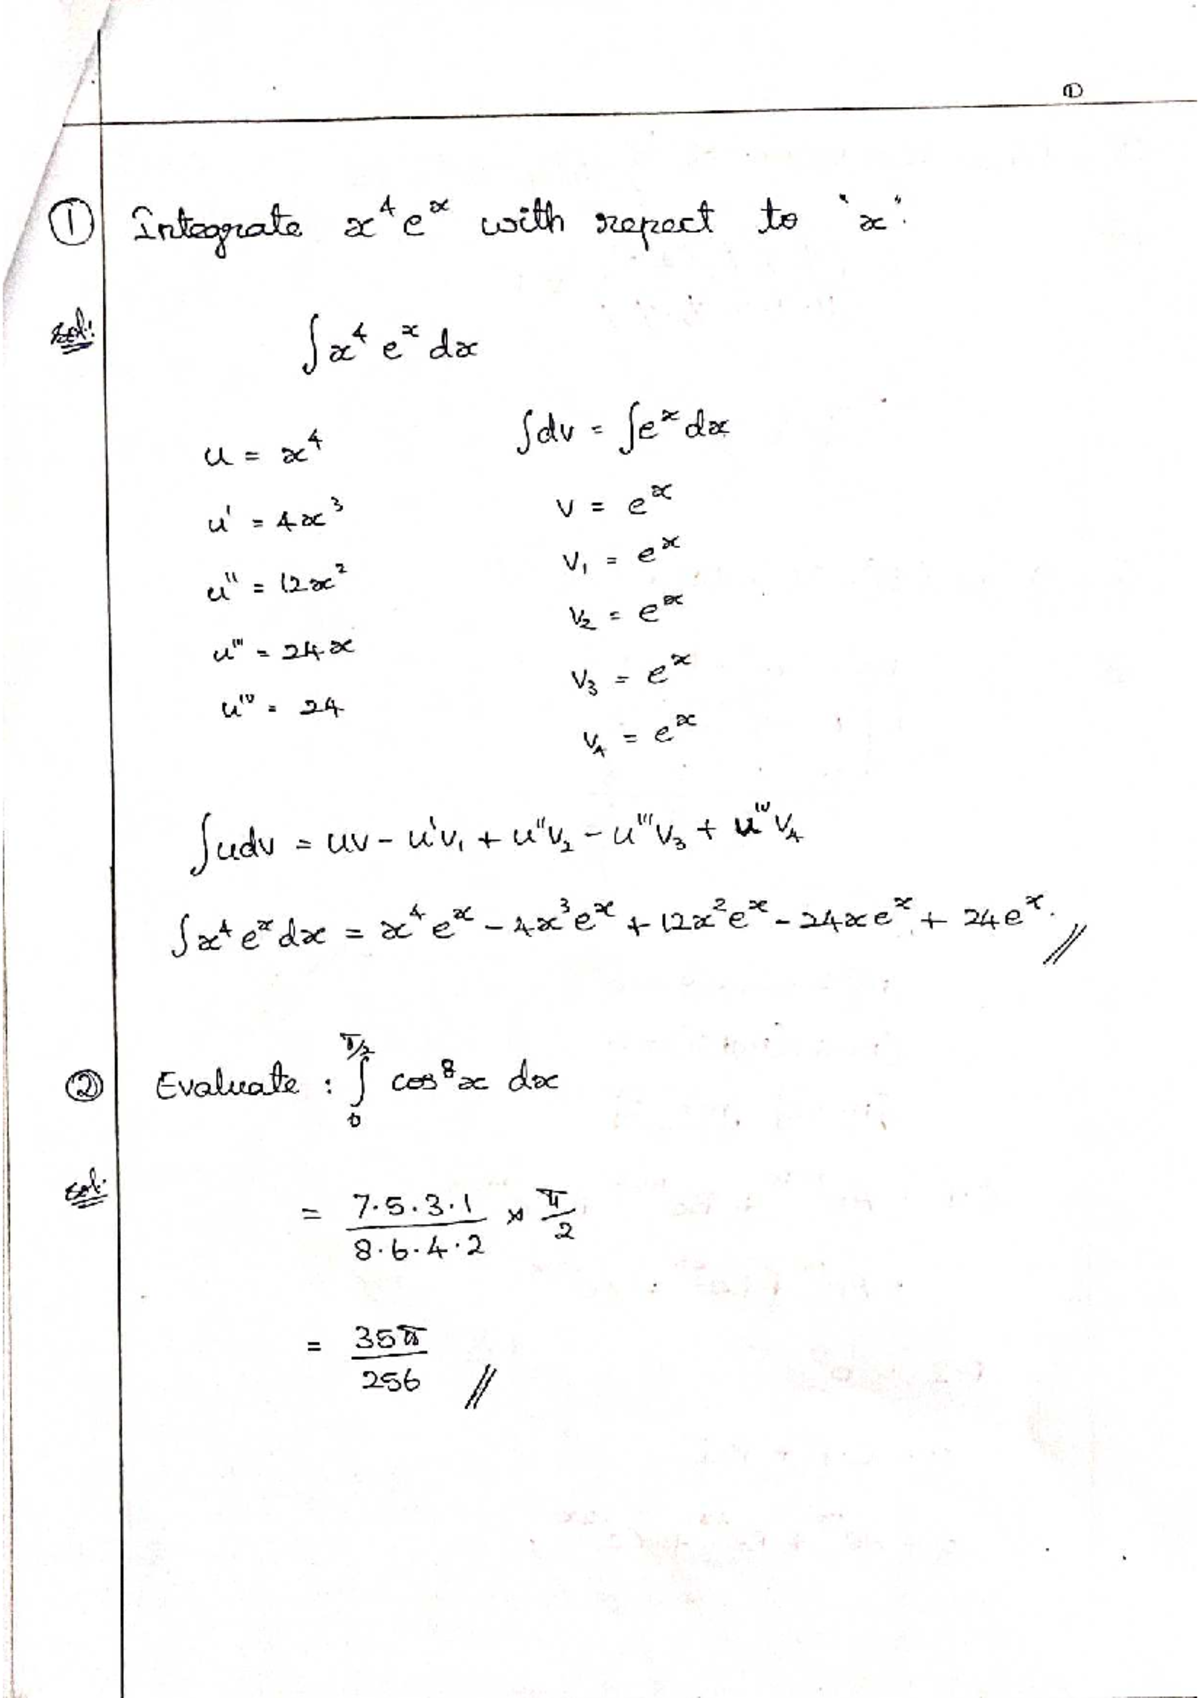 ①
① Integrate x⁴eˣ with repect to 'x'.
Sol:
∫x⁴ eˣ dx
u = x⁴ ∫dv = ∫eˣ dx
u' = 4x³ v = eˣ
u'' = 12x² v₁ = eˣ
u''' = 24x v₂ = eˣ
uⁱᵛ = 24 v₃ = eˣ
v₄ = eˣ
∫udv = uv - u'v₁ + u''v₂ - u'''v₃ + uⁱᵛv₄
∫x⁴ eˣ dx = x⁴eˣ - 4x³eˣ + 12x²eˣ - 24xeˣ + 24eˣ. //
② Evaluate : ∫₀^(π/2) cos⁸x dx
Sol:
= (7·5·3·1)/(8·6·4·2) × π/2
= 35π/256 //